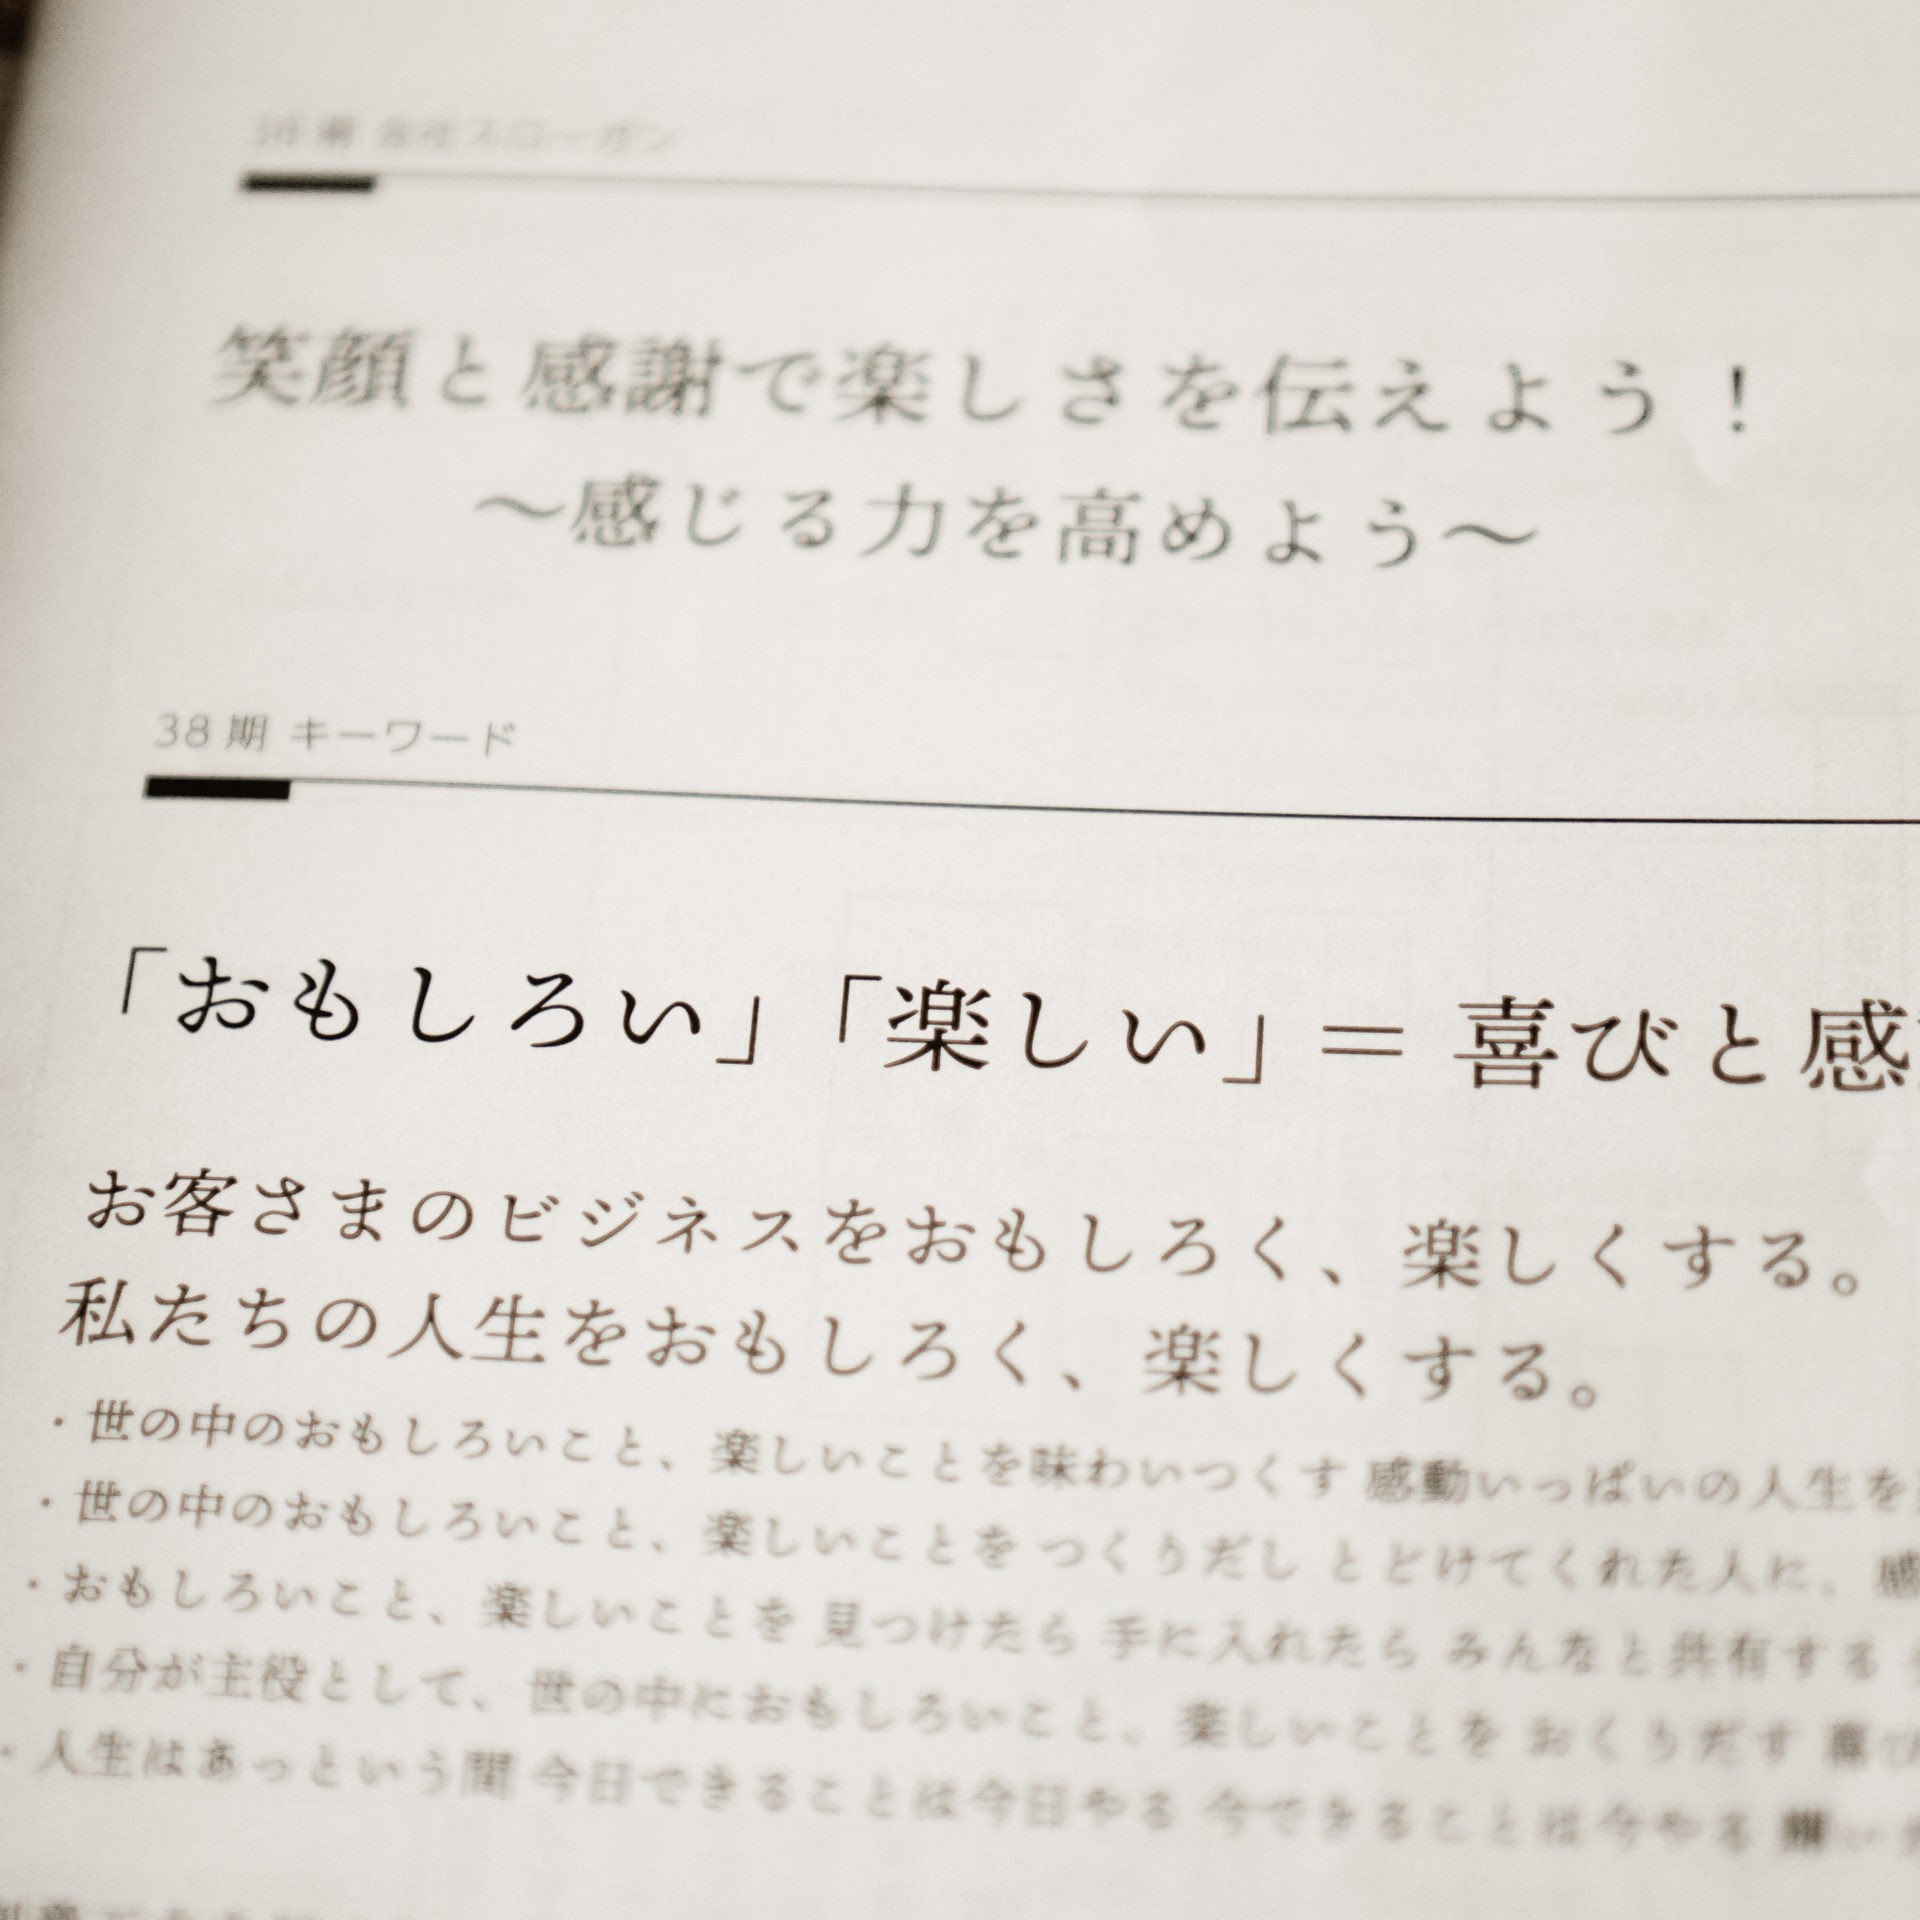 38期 会社スローガン
笑顔と感謝で楽しさを伝えよう！
〜感じる力を高めよう〜
38期 キーワード
「おもしろい」「楽しい」＝ 喜びと感
お客さまのビジネスをおもしろく、楽しくする。
私たちの人生をおもしろく、楽しくする。
・世の中のおもしろいこと、楽しいことを味わいつくす 感動いっぱいの人生を
・世の中のおもしろいこと、楽しいことを つくりだし とどけてくれた人に、感
・おもしろいこと、楽しいことを 見つけたら 手に入れたら みんなと共有する
・自分が主役として、世の中におもしろいこと、楽しいことを おくりだす 喜び
・人生はあっという間 今日できることは今日やる 今できることは今やる